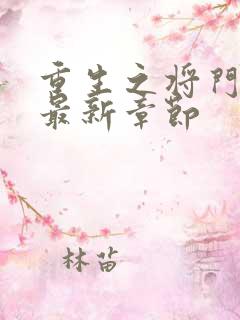 重生之将门
最新章節
林苗